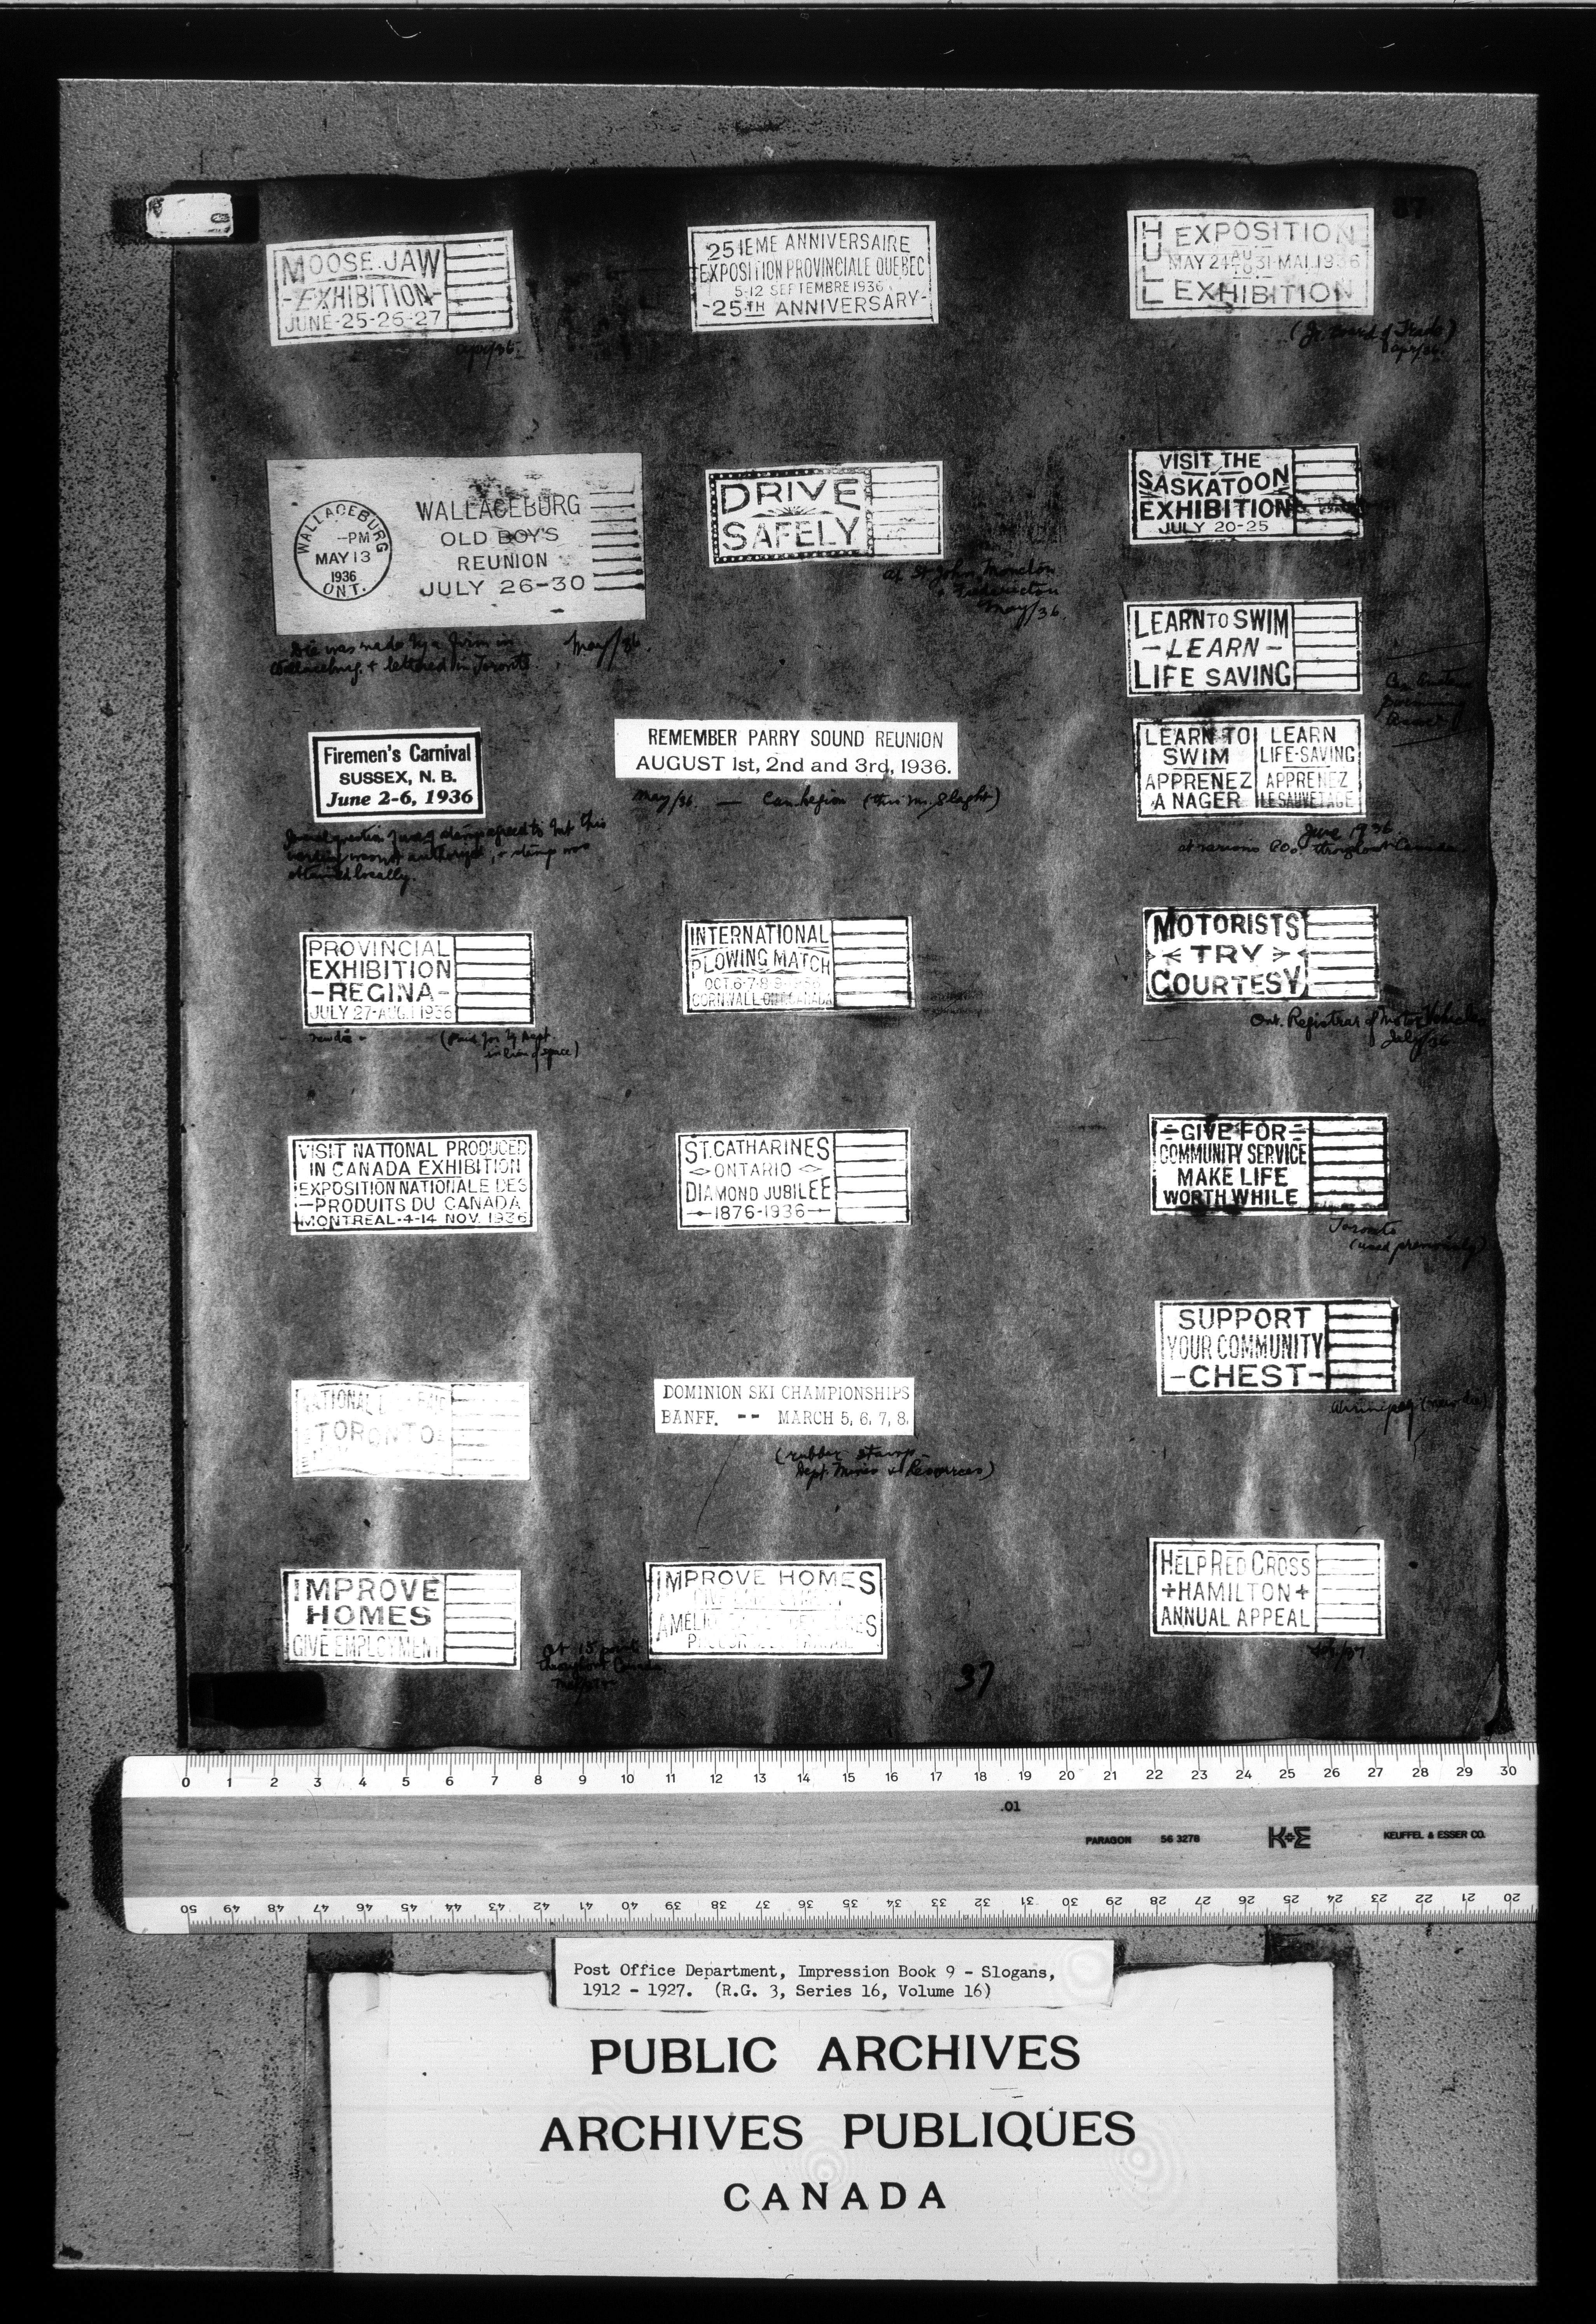 37
MOOSE JAW
-EXHIBITION-
JUNE-25-26-27
apr/36.
25IEME ANNIVERSAIRE
EXPOSITION PROVINCIALE QUEBEC
5-12 SEPTEMBRE 1936
-25TH ANNIVERSARY-
HULL
EXPOSITION
MAY 24 AU TO 31-MAI.1936
EXHIBITION
(Jr. Board of Trade)
apr/36.
WALLACEBURG
--PM
MAY 13
1936
ONT.
WALLACEBURG
OLD BOY'S
REUNION
JULY 26-30
Die was made by a firm in
Wallaceburg. & lettered in Toronto.
May/36.
DRIVE
SAFELY
at St John, Moncton
& Fredericton
May/36.
VISIT THE
SASKATOON
EXHIBITION
JULY 20-25
LEARN TO SWIM
-LEARN-
LIFE SAVING
LEARN TO
SWIM
APPRENEZ
A NAGER
LEARN
LIFE-SAVING
APPRENEZ
LE SAUVETAGE
June 1936.
at various POs. throughout Canada
Firemen's Carnival
SUSSEX, N. B.
June 2-6, 1936
stamp agreed to but this
wasn't authorized, & stamp was
obtained locally.
REMEMBER PARRY SOUND REUNION
AUGUST 1st, 2nd and 3rd, 1936.
May/36. — Can. Legion (thru Mr. Slaght)
PROVINCIAL
EXHIBITION
-REGINA-
JULY 27-AUG.1 1936
new die -
(Paid for by Dept
in lieu of space)
INTERNATIONAL
PLOWING MATCH
OCT. 6-7-8-9-1936
CORNWALL-ONT. CANADA
MOTORISTS
TRY
COURTESY
Ont. Registrar of Motor Vehicles
July/36
VISIT NATIONAL PRODUCED
IN CANADA EXHIBITION
EXPOSITION NATIONALE DES
-PRODUITS DU CANADA
MONTREAL-4-14 NOV. 1936
ST. CATHARINES
ONTARIO
DIAMOND JUBILEE
1876-1936
-GIVE FOR-
COMMUNITY SERVICE
MAKE LIFE
WORTH WHILE
Toronto
(used previously)
SUPPORT
YOUR COMMUNITY
-CHEST-
Winnipeg (new die)
NATIONAL
TORONTO
DOMINION SKI CHAMPIONSHIPS
BANFF. -- MARCH 5, 6, 7, 8.
(rubber stamp -
Dept. Mines & Resources)
IMPROVE
HOMES
GIVE EMPLOYMENT
At 15 points
throughout Canada
IMPROVE HOMES
HELP RED CROSS
+HAMILTON+
ANNUAL APPEAL
37
0 1 2 3 4 5 6 7 8 9 10 11 12 13 14 15 16 17 18 19 20 21 22 23 24 25 26 27 28 29 30
.01
PARAGON 56 3278 K+E KEUFFEL & ESSER CO.
50 49 48 47 46 45 44 43 42 41 40 39 38 37 36 35 34 33 32 31 30 29 28 27 26 25 24 23 22 21 20
Post Office Department, Impression Book 9 - Slogans,
1912 - 1927. (R.G. 3, Series 16, Volume 16)
PUBLIC ARCHIVES
ARCHIVES PUBLIQUES
CANADA